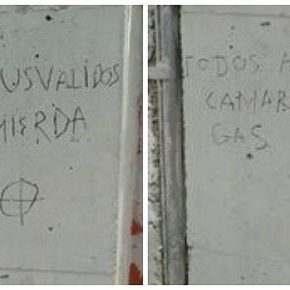 USVALIDOS
MIERDA
TODOS A
CAMAR
GAS